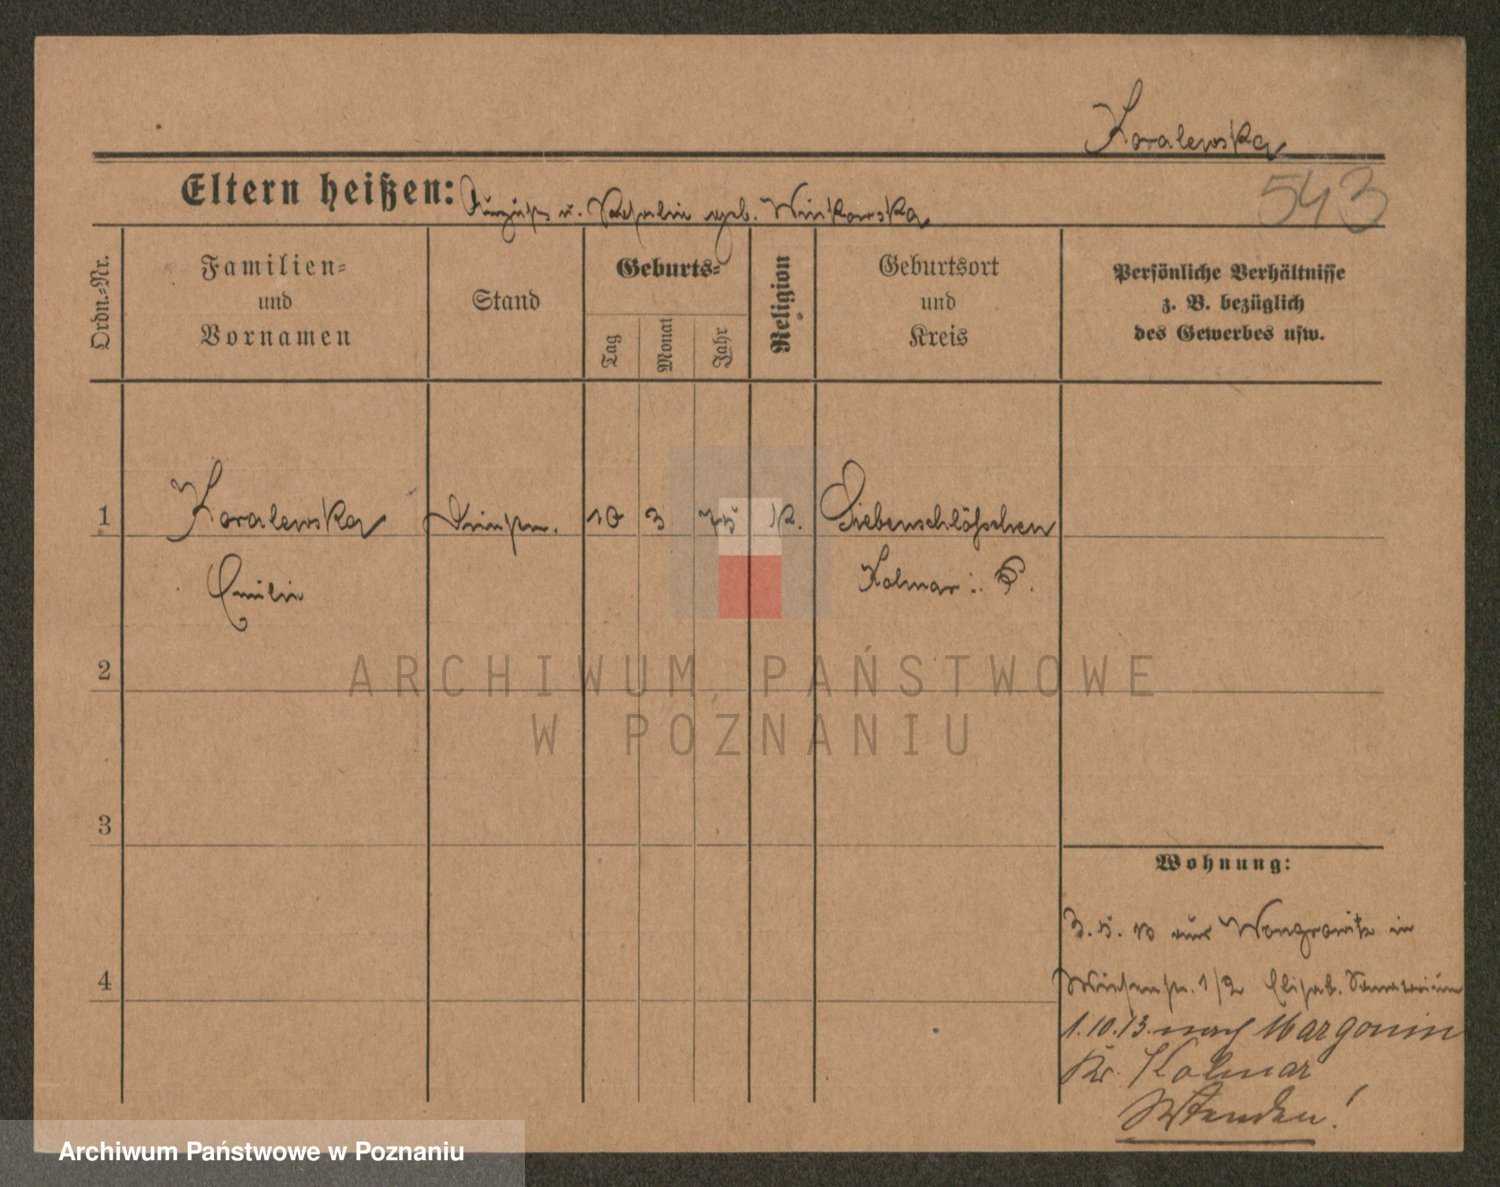 Koralewska
Eltern heißen: u. geb.
543
Ordn.-Nr.
Familien-
und
Vornamen
Stand
Geburts-
Tag
Monat
Jahr
Religion
Geburtsort
und
Kreis
Persönliche Verhältnisse
z. B. bezüglich
des Gewerbes usw.
1 Koralewska 10 3 75 K. Siebenschlößchen
Emilie Kolmar i. P.
2
3
4
Wohnung:
3. 5. 13 aus Wongrowitz in
Wiesenstr. 1/2 Elisab. Sanatorium
1.10.13. nach Margonin
Kr. Kolmar
ARCHIWUM PAŃSTWOWE
W POZNANIU
Archiwum Państwowe w Poznaniu